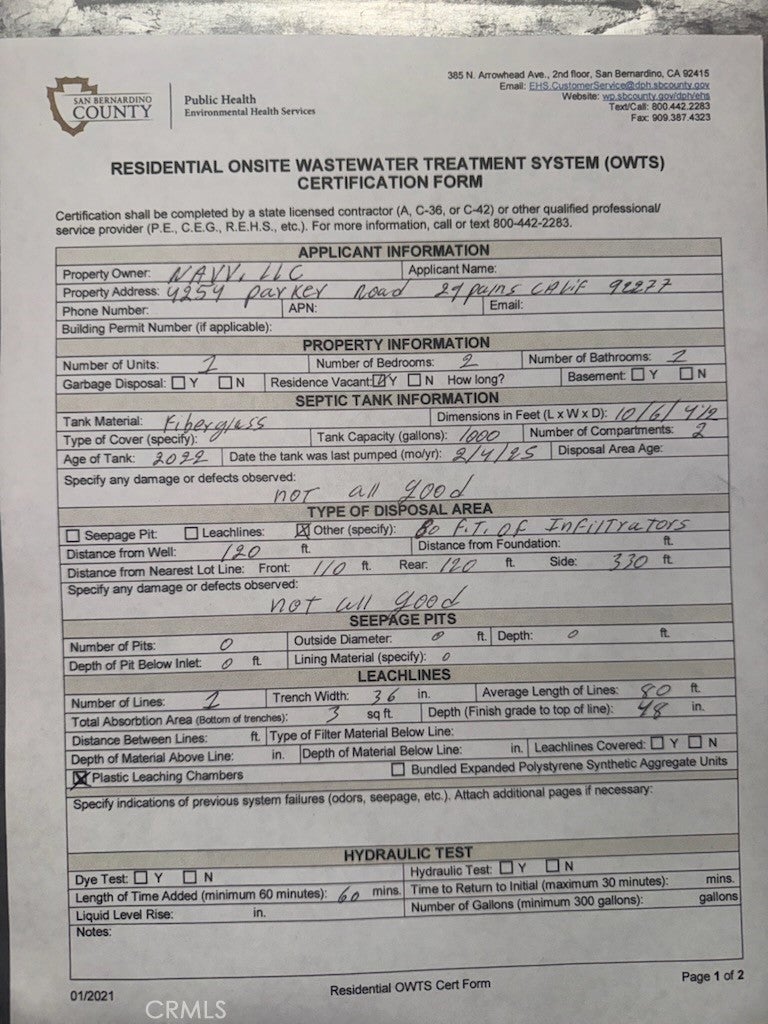 SAN BERNARDINO
COUNTY
Public Health
Environmental Health Services
385 N. Arrowhead Ave., 2nd floor, San Bernardino, CA 92415
Email: EHS.CustomerService@dph.sbcounty.gov
Website: wp.sbcounty.gov/dph/ehs
Text/Call: 800.442.2283
Fax: 909.387.4323
RESIDENTIAL ONSITE WASTEWATER TREATMENT SYSTEM (OWTS)
CERTIFICATION FORM
Certification shall be completed by a state licensed contractor (A, C-36, or C-42) or other qualified professional/
service provider (P.E., C.E.G., R.E.H.S., etc.). For more information, call or text 800-442-2283.
APPLICANT INFORMATION
Property Owner: NAVV, LLC Applicant Name:
Property Address: 4254 Parker Road 29 palms CALIF 92277
Phone Number: APN: Email:
Building Permit Number (if applicable):
PROPERTY INFORMATION
Number of Units: 1 Number of Bedrooms: 2 Number of Bathrooms:
Garbage Disposal: Y N Residence Vacant: Y N How long? Basement: Y N
SEPTIC TANK INFORMATION
Tank Material: Fiberglass Dimensions in Feet (L x W x D): 10/6/4 1/2
Type of Cover (specify): Tank Capacity (gallons): 1000 Number of Compartments: 2
Age of Tank: 2022 Date the tank was last pumped (mo/yr): 2/4/25 Disposal Area Age:
Specify any damage or defects observed:
not all good
TYPE OF DISPOSAL AREA
Seepage Pit: Leachlines: Other (specify): 80 F.T. OF InFilTrators
Distance from Well: 120 ft. Distance from Foundation: ft.
Distance from Nearest Lot Line: Front: 110 ft. Rear: 120 ft. Side: 330 ft.
Specify any damage or defects observed:
not all good
SEEPAGE PITS
Number of Pits: 0 Outside Diameter: 0 ft. Depth: 0 ft.
Depth of Pit Below Inlet: 0 ft. Lining Material (specify): 0
LEACHLINES
Number of Lines: 1 Trench Width: 36 in. Average Length of Lines: 80 ft.
Total Absorbtion Area (Bottom of trenches): 3 sq ft. Depth (Finish grade to top of line): 48 in.
Distance Between Lines: ft. Type of Filter Material Below Line:
Depth of Material Above Line: in. Depth of Material Below Line: in. Leachlines Covered: Y N
Plastic Leaching Chambers Bundled Expanded Polystyrene Synthetic Aggregate Units
Specify indications of previous system failures (odors, seepage, etc.). Attach additional pages if necessary:
HYDRAULIC TEST
Dye Test: Y N Hydraulic Test: Y N
Length of Time Added (minimum 60 minutes): 60 mins. Time to Return to Initial (maximum 30 minutes): mins.
Liquid Level Rise: in. Number of Gallons (minimum 300 gallons): gallons
Notes:
01/2021 Residential OWTS Cert Form Page 1 of 2
CRMLS